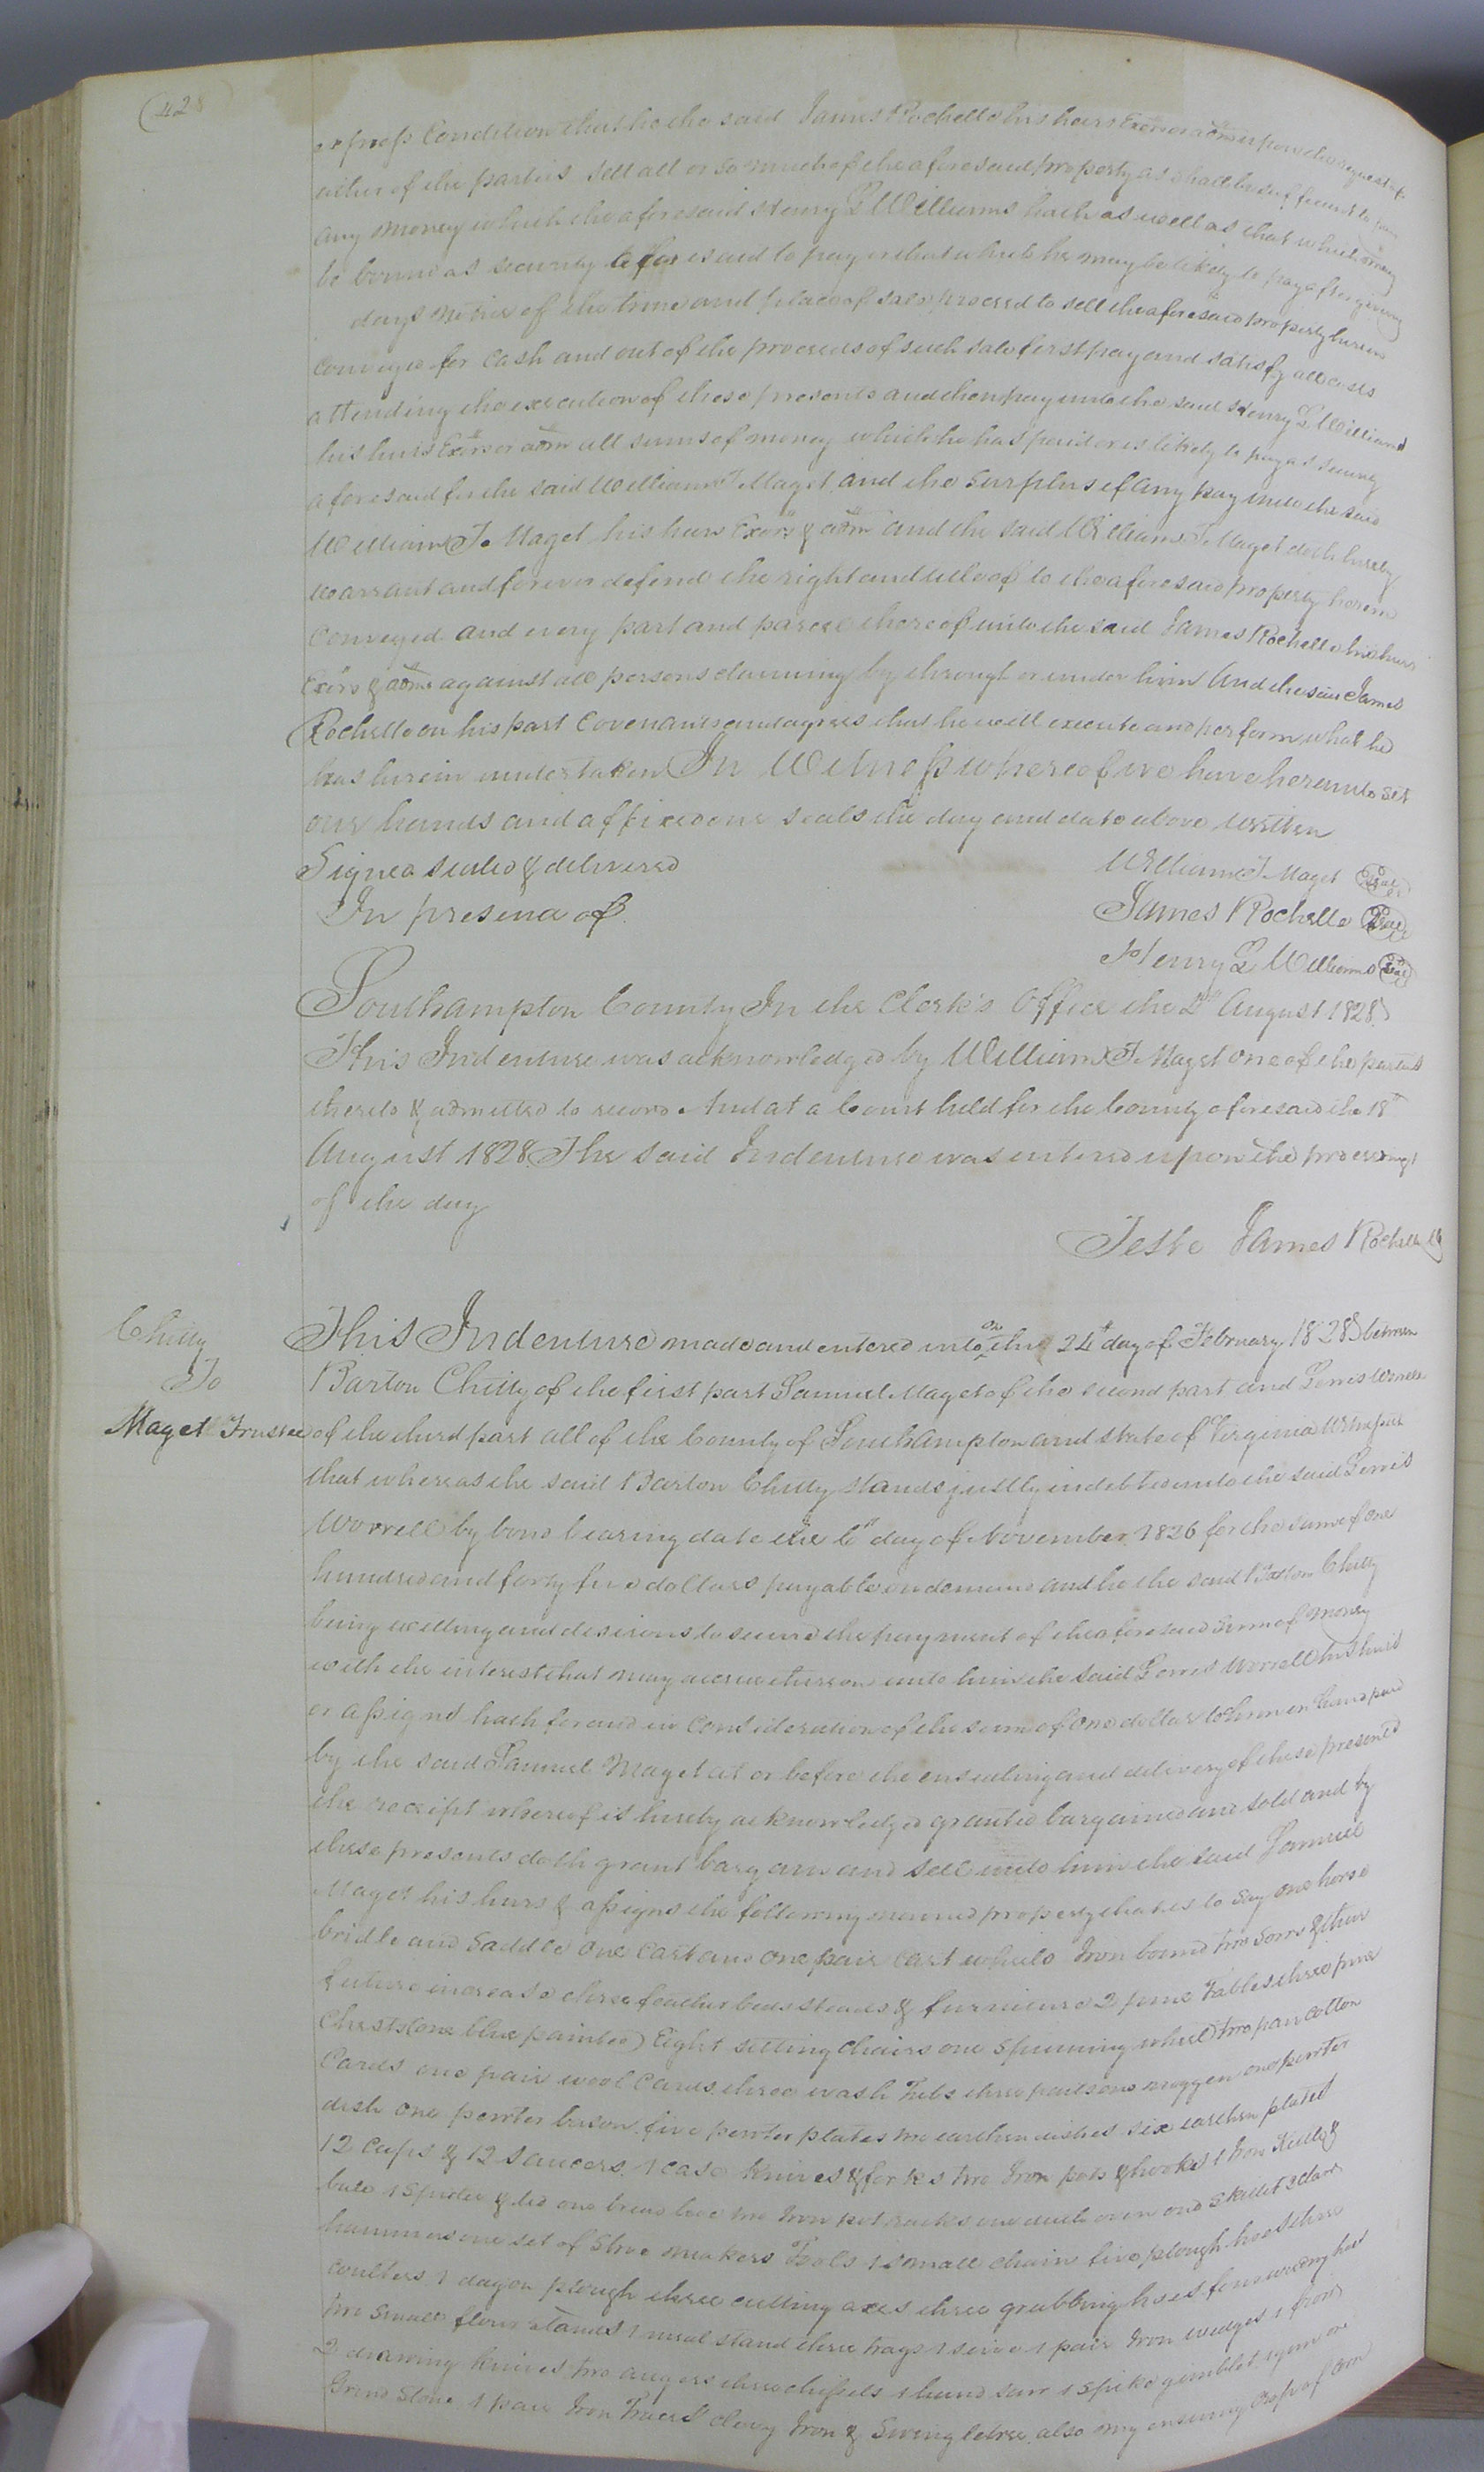 (428
express Condition that he the said James Rochelle his heirs Exōrs or adm̄rs upon the request of
either of the parties sell all or so much of the aforesaid property as shall be sufficient to pay
any money which the aforesaid Henry L Williams hath as well as that which may
be bound as security aforesaid to pay or that which he may be likely to pay after giving
days notice of the time and place of sale proceed to sell the aforesaid property herein
Conveyed for Cash and out of the proceeds of such sale first pay and satisfy all costs
attending the execution of these presents and then pay unto the said Henry L Williams
his heirs Exōrs or adm̄ all sums of money which he has paid or is likely to pay as security
aforesaid for the said William T Maget, and the Surplus if any pay unto the said
William T. Maget his heirs Exōrs & adm̄ and the said William T Maget doth hereby
warrant and forever defend the right and title of to the aforesaid property herein
Conveyed and every part and parcel thereof unto the said James Rochelle his heirs
Exōrs & adm̄s against all persons claiming by through or under him And the said James
Rochelle on his part Covenants and agrees that he will execute and perform what he
has herein undertaken In Witness whereof we have hereunto set
our hands and affixed our seals the day and date above written
Signed sealed & delivered William T Maget Seal
In presence of James Rochelle Seal
Henry L Williams Seal
Southampton County In the Clerk's Office the 2nd August 1828
This Indenture was acknowledged by William T Maget one of the parties
thereto & admitted to record And at a Court held for the County aforesaid the 18th
August 1828 The said Indenture was entered upon the proceedings
of the day
Teste James Rochelle
Chitty
To
Maget Trustee
This Indenture made and entered into on this 24th day of February 1828 between
Barton Chitty of the first part Samuel Maget of the second part and Lewis Worrell
of the third part all of the County of Southampton and state of Virginia Witnesseth
that whereas the said Barton Chitty stands justly indebted unto the said Lewis
Worrell by bond bearing date the 6th day of November 1826 for the sum of one
hundred and forty five dollars payable on demand and he the said Barton Chitty
being willing and desirous to secure the payment of the aforesaid sum of money
with the interest that may accrue thereon unto him the said Lewis Worrell his heirs
or assigns hath for and in Consideration of the sum of one dollar to him in hand paid
by the said Samuel Maget at or before the ensealing and delivery of these presents
the receipt whereof is hereby acknowledged granted bargained and sold and by
these presents doth grant bargain and sell unto him the said Samuel
Maget his heirs & assigns the following named property that is to say one horse
bridle and saddle one cart and one pair cart wheels Iron bound two sows & their
future increase three feather beds steads & furniture 2 pine Tables three pine
Chests (one blue painted) Eight sitting Chairs one Spinning wheel two pair cotton
Cards one pair wool Cards three wash Tubs three pails one noggen one pewter
dish one pewter bason five pewter plates two earthen dishes six earthen plates
12 Cups & 12 Saucers. 1 case Knives & forks two Iron pots & hooks 1 Iron Kettle &
bale 1 Spider & lid one bread hoe two Iron pot racks one dutch oven one Skillet 2 claw
hammers one set of Shoe makers Tools 1 small chain five plough hoes three
coulters 1 dagon plough three cutting axes three grubbing hoes four weeding hoes
two small flour stands 1 meal stand three trays 1 sieve 1 pair Iron wedges 1 frow
2 drawing knives two augers three chissels 1 hand saw 1 Spike gimblet 1 gun one
Grind Stone 1 pair Iron Traces Clevy Iron & Swingletree also my ensuing crop of Corn